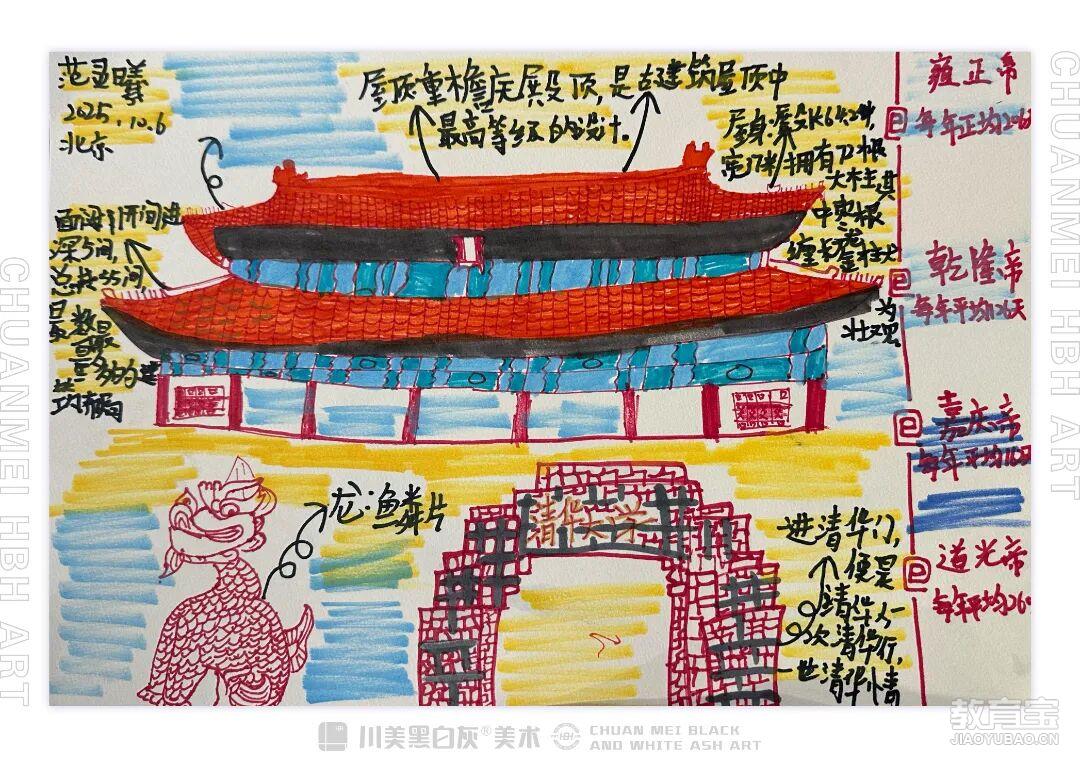 范
曦
2025.10.6
北京
屋顶重檐庑殿顶,是古建筑屋顶中
最高等级的设计。
宽17米拥有72根
大柱其
中
为
壮观。
面阔11开间进
深5间,
总共55间
是
数最
多的建
筑
龙:鱼鳞片
清华大学
进清华门,
便是
清华人
一次清华行,
一世清华情
雍正帝
每年平均206
乾隆帝
每年平均126天
嘉庆帝
每年平均162
道光帝
每年平均260
CHUANMEI HBH ART
CHUANMEI HBH ART
川美黑白灰®美术
HBH
CHUAN MEI BLACK
AND WHITE ASH ART
教育宝
JIAOYUBAO.CN